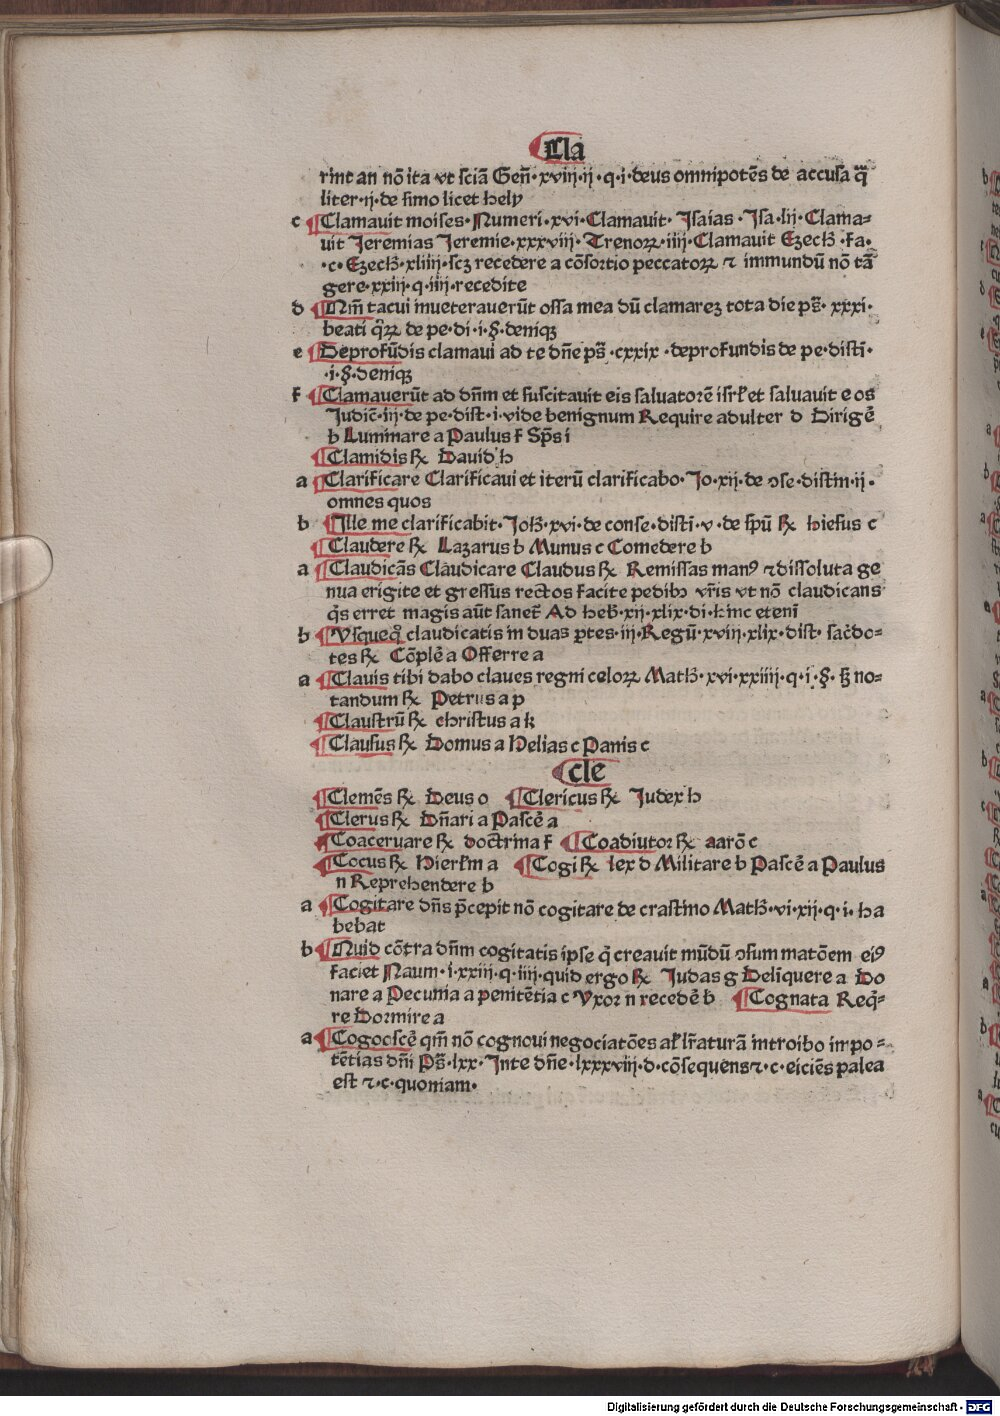 Cla
rint an nō ita vt sciā Geñ·xviii·ii·q·i·deus omnipotēs de accusa q̄
liter·ii·de simo licet hely
c ¶Clamauit moises·Numeri·xvi·Clamauit·Isaias·Isa·lii·Clama-
uit Jeremias Jeremie·xxxviii·Trenoꝝ·iiii·Clamauit Ezech̄·Fa·
·c·Ezech̄·xliiii·scꝫ recedere a cōsortio peccatoꝝ ⁊ immundū nō tā
gere·xxiii·q·iiii·recedite
d ¶Qm̄ tacui inueterauerūt ossa mea dū clamareꝫ tota die ps̄·xxxi·
beati q̄ꝝ de pe·di·i·§·deniqꝫ
e ¶Deprofūdis clamaui ad te dn̄e ps̄·cxxix·deprofundis de pe·disti·
·i·§·deniqꝫ
f ¶Clamauerūt ad dn̄m et suscitauit eis saluatorē isrl̄ et saluauit e os
Judic̄·iii·de pe·dist·i·vide benignum Require adulter d Dirigē
b Luminare a Paulus f Sp̄s i
¶Clamidis ℞ Dauid h
a ¶Clarificare Clarificaui et iterū clarificabo·Jo·xii·de ↄse·distin·ii·
omnes quos
b ¶Ille me clarificabit·Joh̄·xvi·de conse·disti·v·de spū ℞ hiesus c
¶Claudere ℞ Lazarus b Munus c Comedere b
a ¶Claudicās Claudicare Claudus ℞ Remissas manꝰ ⁊ dissoluta ge
nua erigite et gressus rectos facite pedibꝫ vr̄is vt nō claudicans
q̄s erret magis aūt sanet̄ Ad heb̄·xii·xlix·di·hinc eteni
b ¶Vsqueq̄ claudicatis in duas ꝑtes·iii·Regū·xviii·xlix·dist·sac̄do-
tes ℞ Cōplē a Offerre a
a ¶Clauis tibi dabo claues regni celoꝝ Math̄·xvi·xxiiii·q·i·§·sꝫ no-
tandum ℞ Petrus a p
¶Claustrū ℞ christus a k
¶Clausus ℞ Domus a Helias c Panis c
cle
¶Clemēs ℞ Deus o ¶Clericus ℞ Judex h
¶Clerus ℞ Dn̄ari a Pascē a
¶Coaceruare ℞ doctrina f ¶Coadiutor ℞ aarō c
¶Cocus ℞ Hierl̄m a ¶Cogi ℞ lex d Militare b Pascē a Paulus
n Reprehendere b
a ¶Cogitare dn̄s p̄cepit nō cogitare de crastino Math̄·vi·xii·q·i·ha
bebat
b ¶Quid cōtra dn̄m cogitatis ipse q̄ creauit mūdū ↄsummatōem eiꝰ
faciet Naum·i·xxiii·q·iiii·quid ergo ℞ Judas g Deliquere a Do
nare a Pecunia a penitētia c Vxor n recedē b ¶Cognata Req̄-
re Dormire a
a ¶Cogooscē qm̄ nō cognoui negociatōes al̄ lr̄aturā introibo in po-
tētias dn̄i Ps̄·lxx·Inte dn̄e·lxxxviii·d·cōsequens ⁊·c·eiciēs palea
est ⁊·c·quoniam·
Digitalisierung gefördert durch die Deutsche Forschungsgemeinschaft - DFG